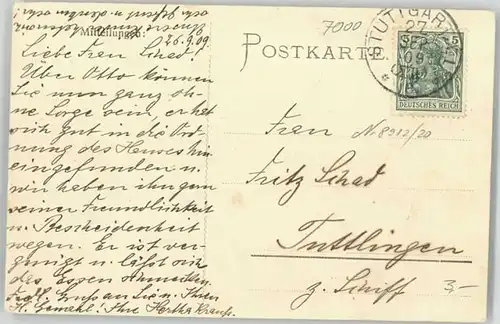 Mitteilungen:
26.9.09.
Liebe Frau Schad!
Über Otto können
Sie nun ganz oh-
ne Sorge sein, er hat
sich gut in die Ord-
nung des Hauses hin-
eingefunden u.
wir haben ihn gern
seiner Freundlichkeit
u. Bescheidenheit
wegen. Er ist ver-
gnügt u. lässt sich
das Essen schmecken.
Gruss an Sie u. Ihren
H. Gemahl! Ihre Hertha
7000
POSTKARTE
STUTTGART
27
SEP
09
5 5
DEUTSCHES REICH
Frau
N-8912/20
Fritz Schad
Tuttlingen
z. Schiff
3,-